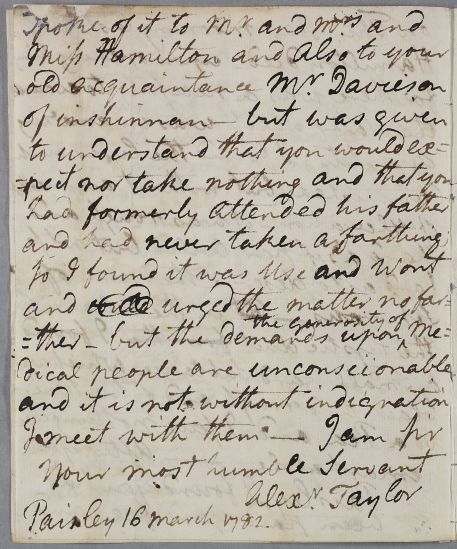 Spoke of it to Mr and Mrs and
Miss Hamilton and also to your
old acquaintance Mr Davieson
of inshinnan — but was given
to understand that you would ex=
=pect nor take nothing and that you
had formerly attended his father
and had never taken a farthing
so I found it was use and wont
and urged the matter no far=
=ther — but the demands upon the generosity of me=
dical people are unconscionable
and it is not without indignation
I meet with them — I am sir
your most humble Servant
Alexr Taylor
Paisley 16 march 1782.